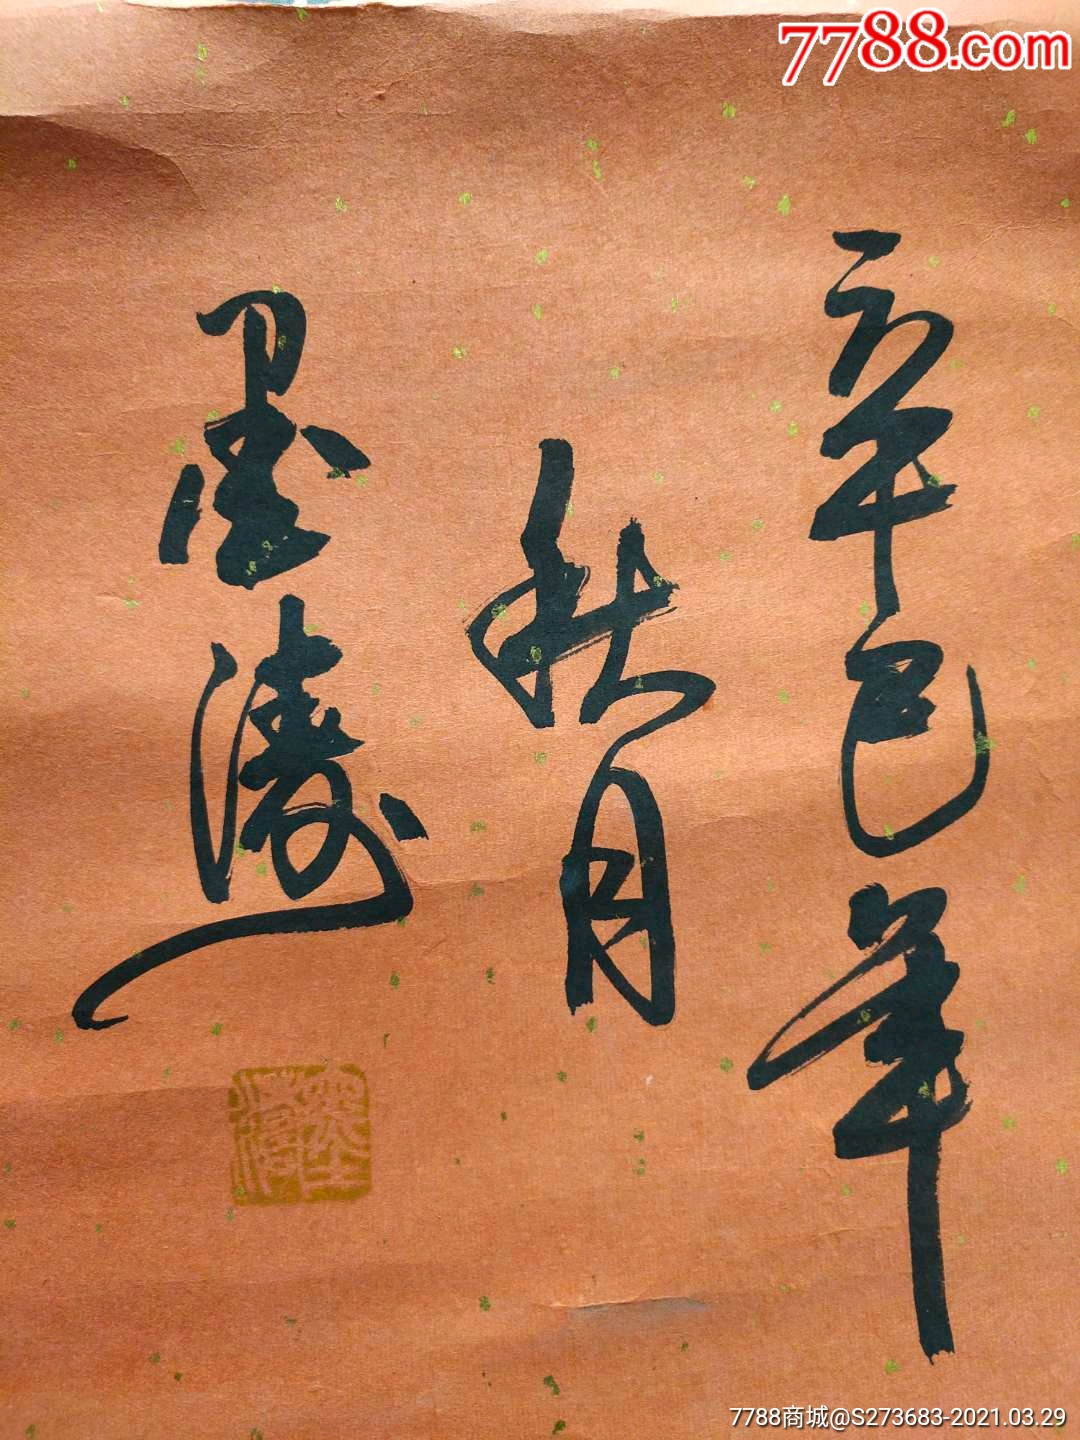 7788.com
辛巳年
秋月
墨涛
墨涛
7788商城@S273683-2021.03.29